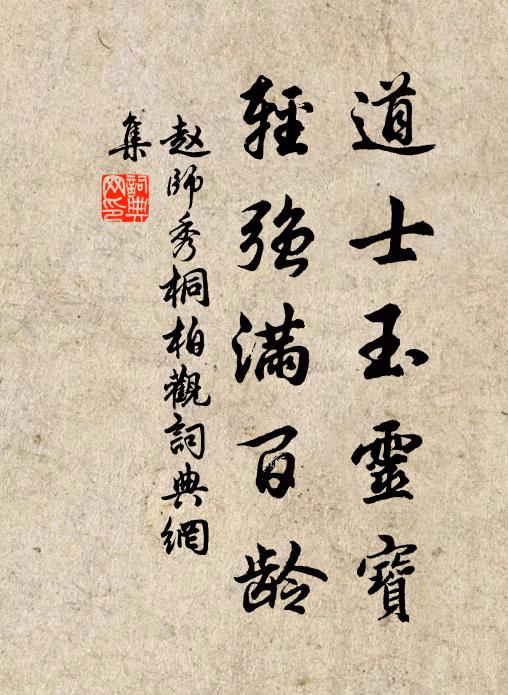 道士玉靈寶
輕強滿百龄
赵師秀桐柏觀詞典網
集
詞典
网印